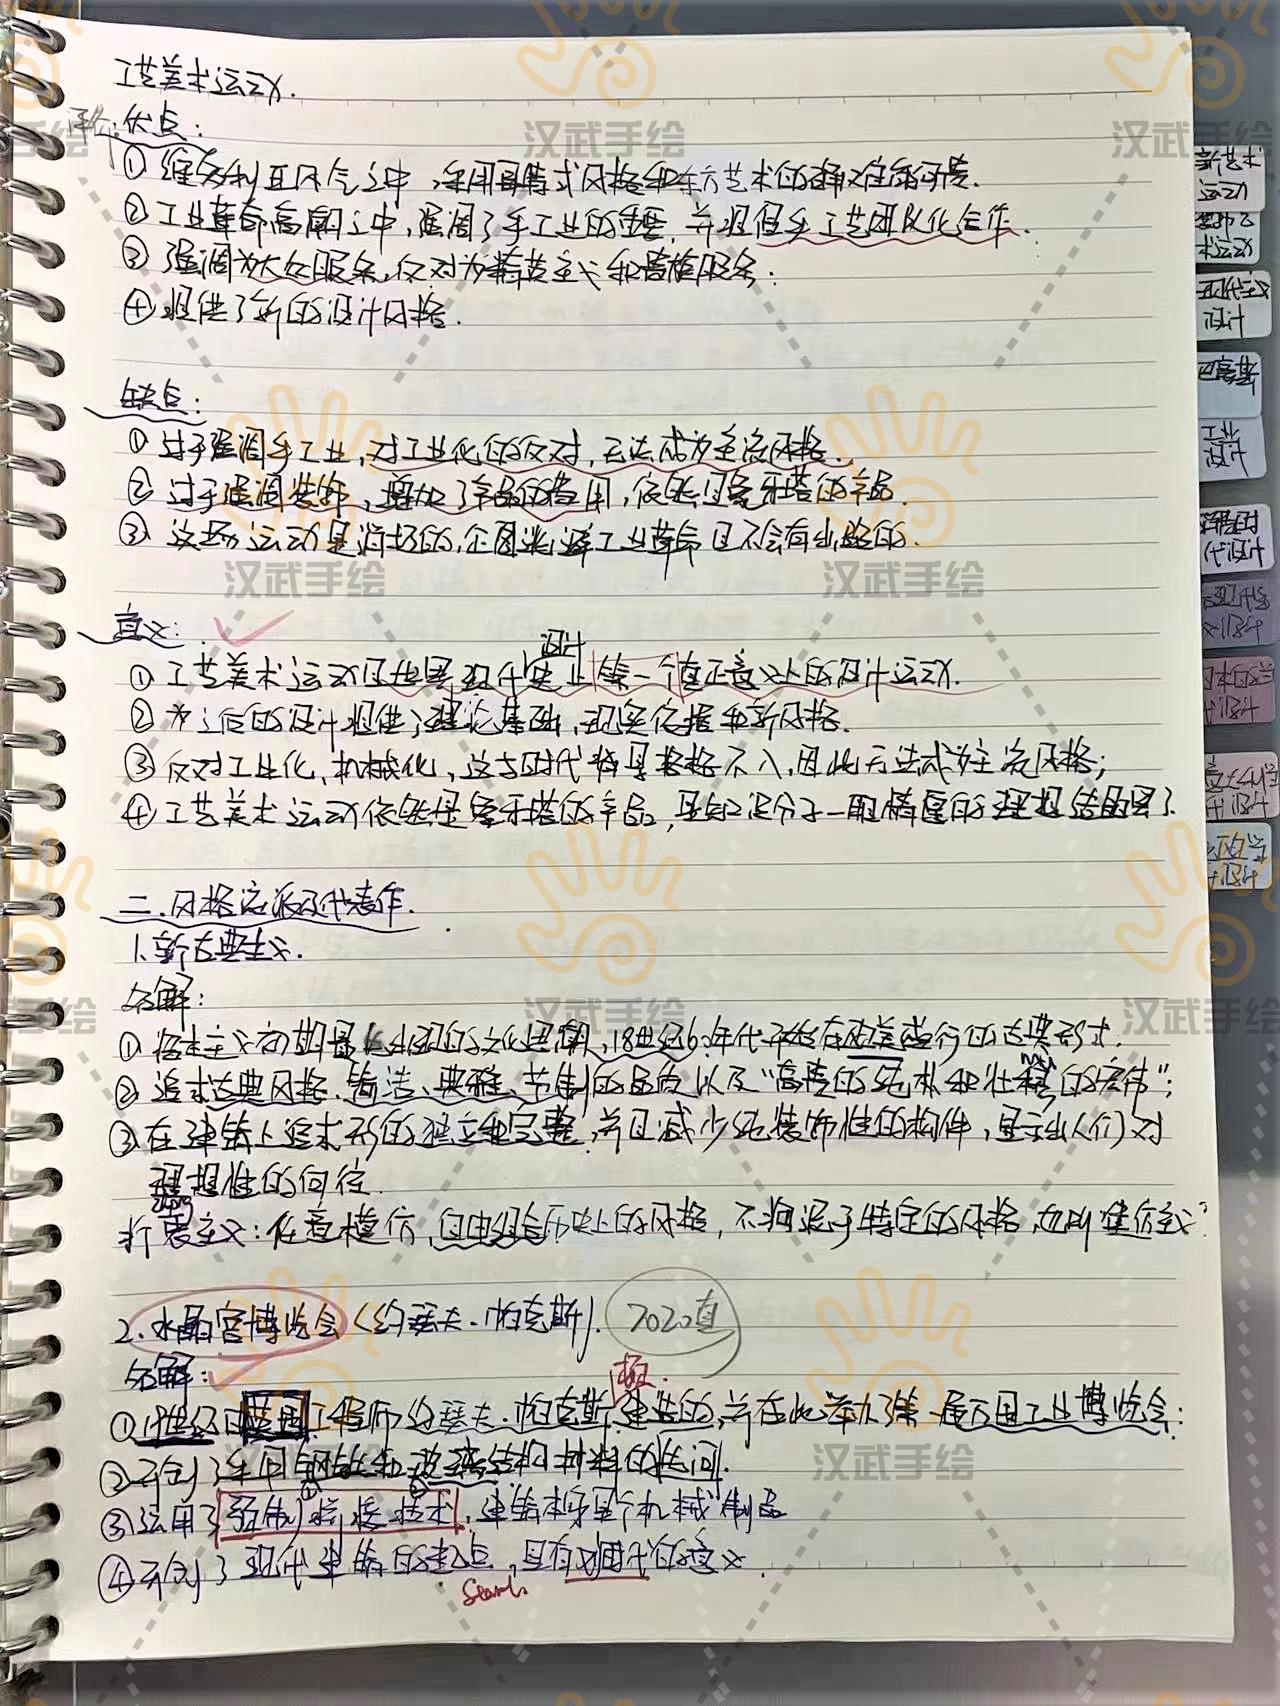 工艺美术运动.
评价: 优点:
① 维多利亚风气之中,采用哥特式风格和东方艺术的
② 工业革命高潮之中,强调了手工业的重要,并提倡手工艺团队化合作.
③ 强调为大众服务,反对为精英主义和贵族服务;
④ 提供了新的设计风格.
缺点:
① 过于强调手工业,对工业化的反对,无法成为主流风格.
② 过于强调装饰,增加了产品的费用,依然是象牙塔的产品.
③ 这场运动是消极的,企图逃避工业革命是不会有出路的.
意义:
设计
① 工艺美术运动是世界现代史上第一个真正意义上的设计运动.
② 为之后的设计提供了理论基础,现实依据和新风格.
③ 反对工业化、机械化,这与时代背景格格不入,因此无法成为主流风格;
④ 工艺美术运动依然是象牙塔的产品,是知识分子一厢情愿的理想结果了.
二.风格流派及代表作.
1.新古典主义.
名解:
① 资本主义初期最先出现的文化思潮,18世纪60年代开始在欧美盛行的古典形式.
② 追求古典风格、简洁、典雅、节制的品质以及“高贵的纯朴和壮穆的宏伟”;
③ 在建筑上追求形的独立和完整,并且减少纯装饰性的构件,显示出人们对
理想性的向往.
折衷主义:任意模仿,自由组合历史上的风格,不拘泥于特定的风格,
2.水晶宫博览会(约瑟夫·帕克斯). 2020真
名解:
① 19世纪由英国工程师约瑟夫·帕克斯 建造的,并在此举办了第一届万国工业博览会;
② 开创了采用钢铁和玻璃结构材料的先河.
③ 运用了预制拼接技术,建筑本身是个机械制品
④ 开创了现代建筑的起点,具有划时代的意义.
汉武手绘
汉武手绘
汉武手绘
汉武手绘
汉武手绘
汉武手绘
汉武手绘
新艺术
运动
现代主义
设计
包豪斯
工业
设计